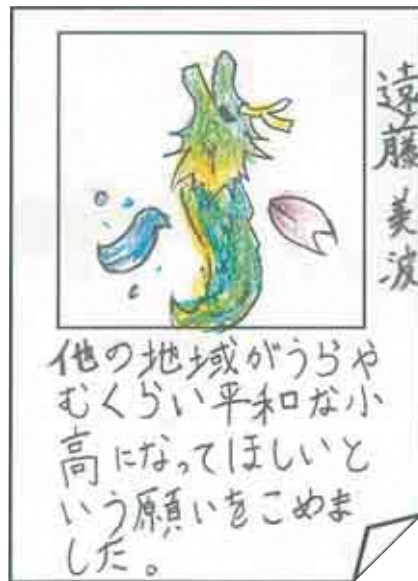 遠藤美波
他の地域がうらや
むくらい平和な小
高になってほしいと
いう願いをこめま
した。